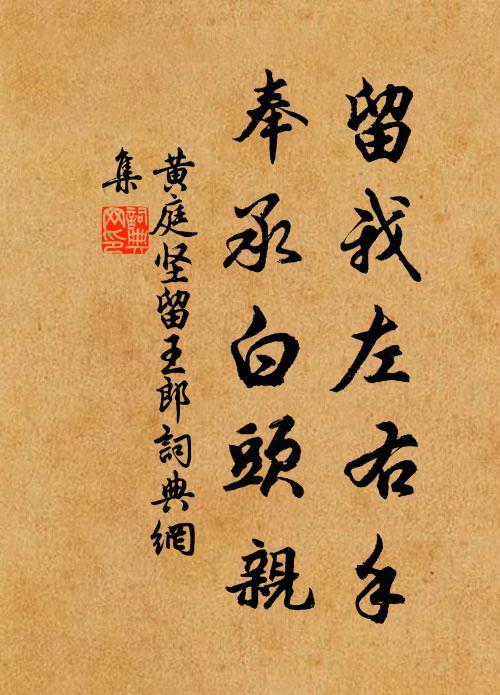 留我左右手
奉承白頭親
黄庭坚留王郎詞典網
集
詞典網印